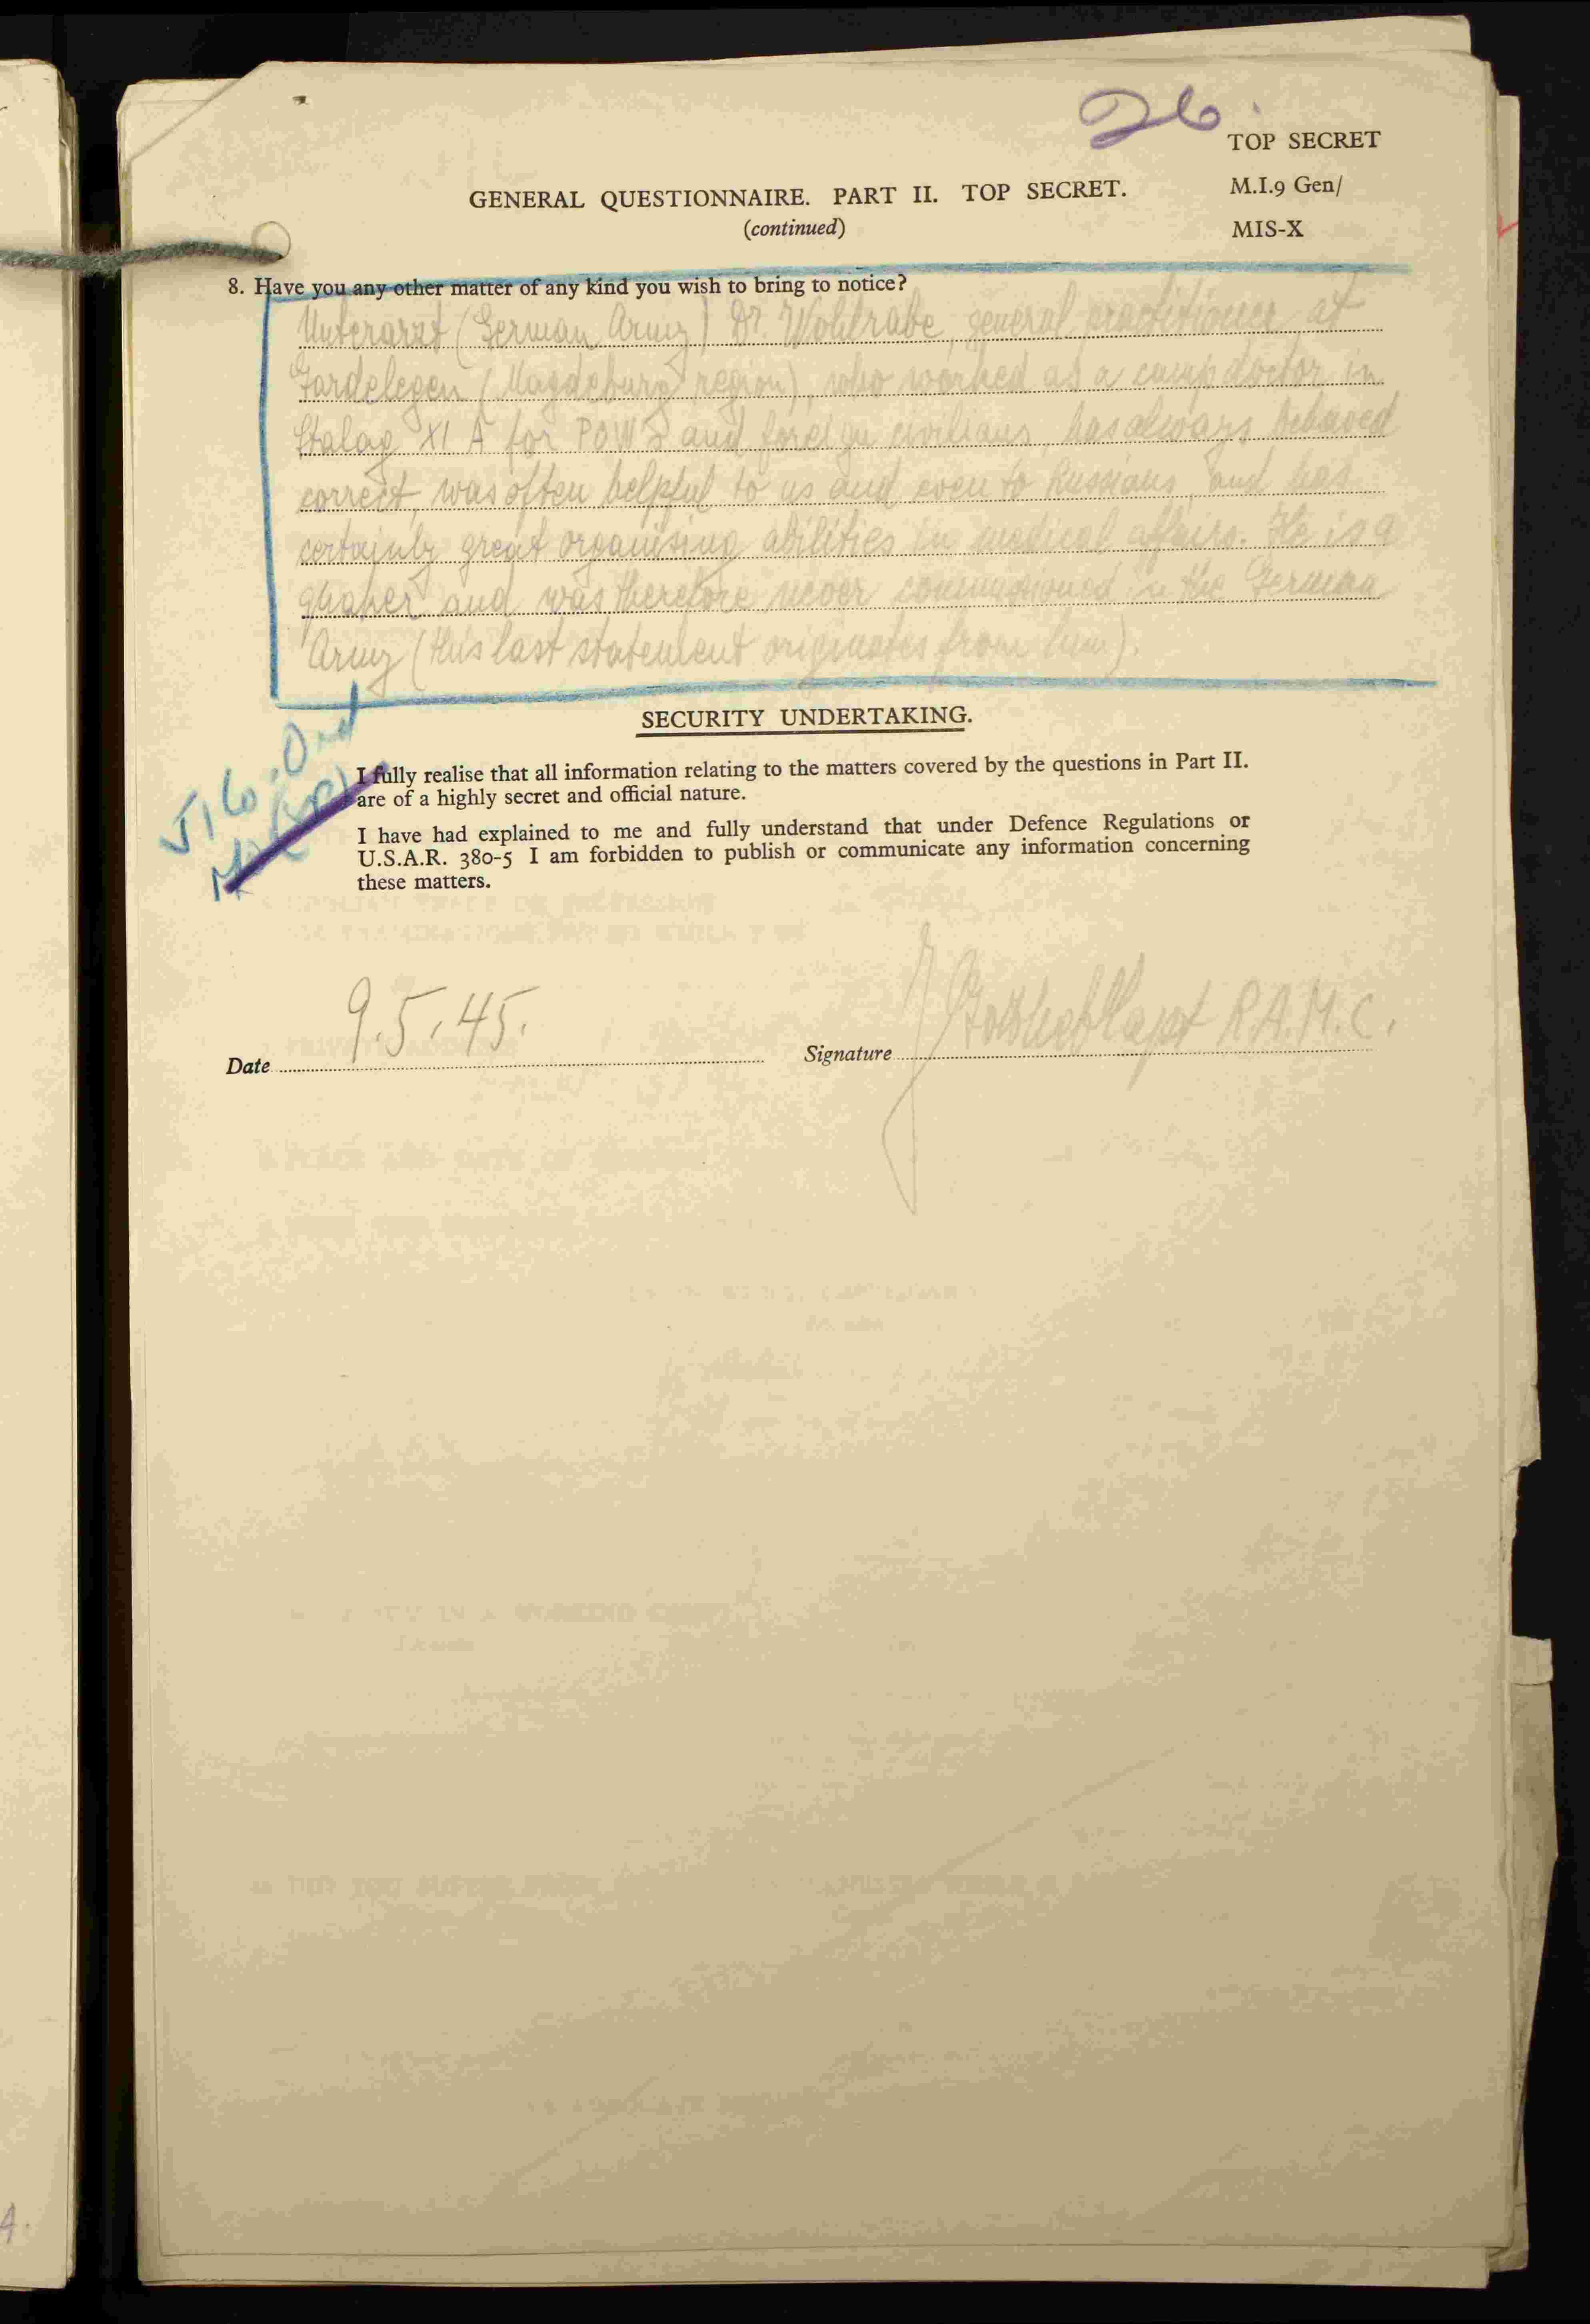 26.
TOP SECRET
M.I.9 Gen/
MIS-X
GENERAL QUESTIONNAIRE. PART II. TOP SECRET.
(continued)
8. Have you any other matter of any kind you wish to bring to notice?
Unterarzt (German Army) Dr. Wohlrabe, general practitioner at
Gardelegen (Magdeburg region), who worked as a camp doctor in
Stalag XI A for POWs and foreign civilians, has always behaved
correct, was often helpful to us and even to Russians, and has
certainly great organising abilities in medical affairs. He is a
quaker and was therefore never commissioned in the German
Army (this last statement originates from him).
SECURITY UNDERTAKING.
I fully realise that all information relating to the matters covered by the questions in Part II.
are of a highly secret and official nature.
I have had explained to me and fully understand that under Defence Regulations or
U.S.A.R. 380-5 I am forbidden to publish or communicate any information concerning
these matters.
Date 9.5.45.
Signature Capt R.A.M.C.